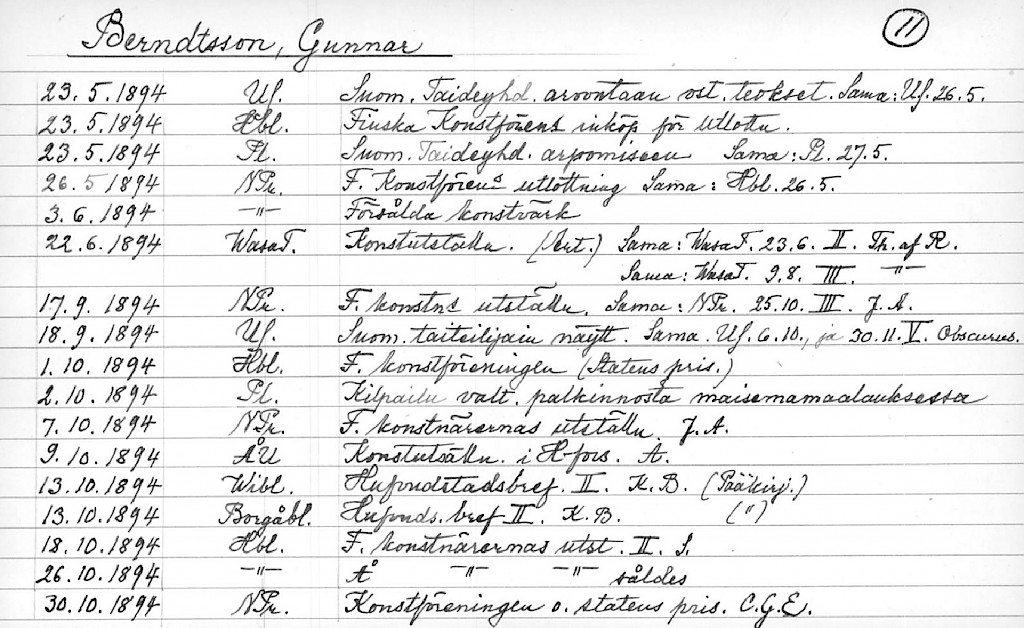 Berndtsson, Gunnar 11
23.5.1894 Uf. Suom. Taideyhd. arvontaan ost. teokset. Sama: Uf. 26.5.
23.5.1894 Hbl. Finska Konstförens inköp för utlottn.
23.5.1894 Pl. Suom. Taideyhd. arpomiseen Sama: Pl. 27.5.
26.5 1894 NPr. F. Konstförens utlottning Sama: Hbl. 26.5.
3.6.1894 —"— Försålda konstvärk
22.6.1894 WasaT. Konstutställn. (Art.) Sama: WasaT. 23.6. II. Th. af R.
Sama: WasaT. 9.8. III —"—
17.9.1894 NPr. F. konstns utställn. Sama: NPr. 25.10. III. J.A.
18.9.1894 Uf. Suom. taiteilijain näytt. Sama. Uf. 6.10., ja 30.11. V. Obscurus.
1.10.1894 Hbl. F. konstföreningen (Statens pris.)
2.10.1894 Pl. Kilpailu valt. palkinnosta maisemamaalauksessa
7.10.1894 NPr. F. konstnärernas utställn. J.A.
9.10.1894 ÅU Konstutsälln. i H-fors. A.
13.10.1894 Wibl. Hufvudstadsbref. II. K.B. (Pääkirj.)
13.10.1894 Borgåbl. Hufvuds. bref II. K.B. (")
18.10.1894 Hbl. F. konstnärernas utst. II. S.
26.10.1894 —"— Å —"— —"— såldes
30.10.1894 NPr. Konstföreningen o. statens pris. C.G.E.